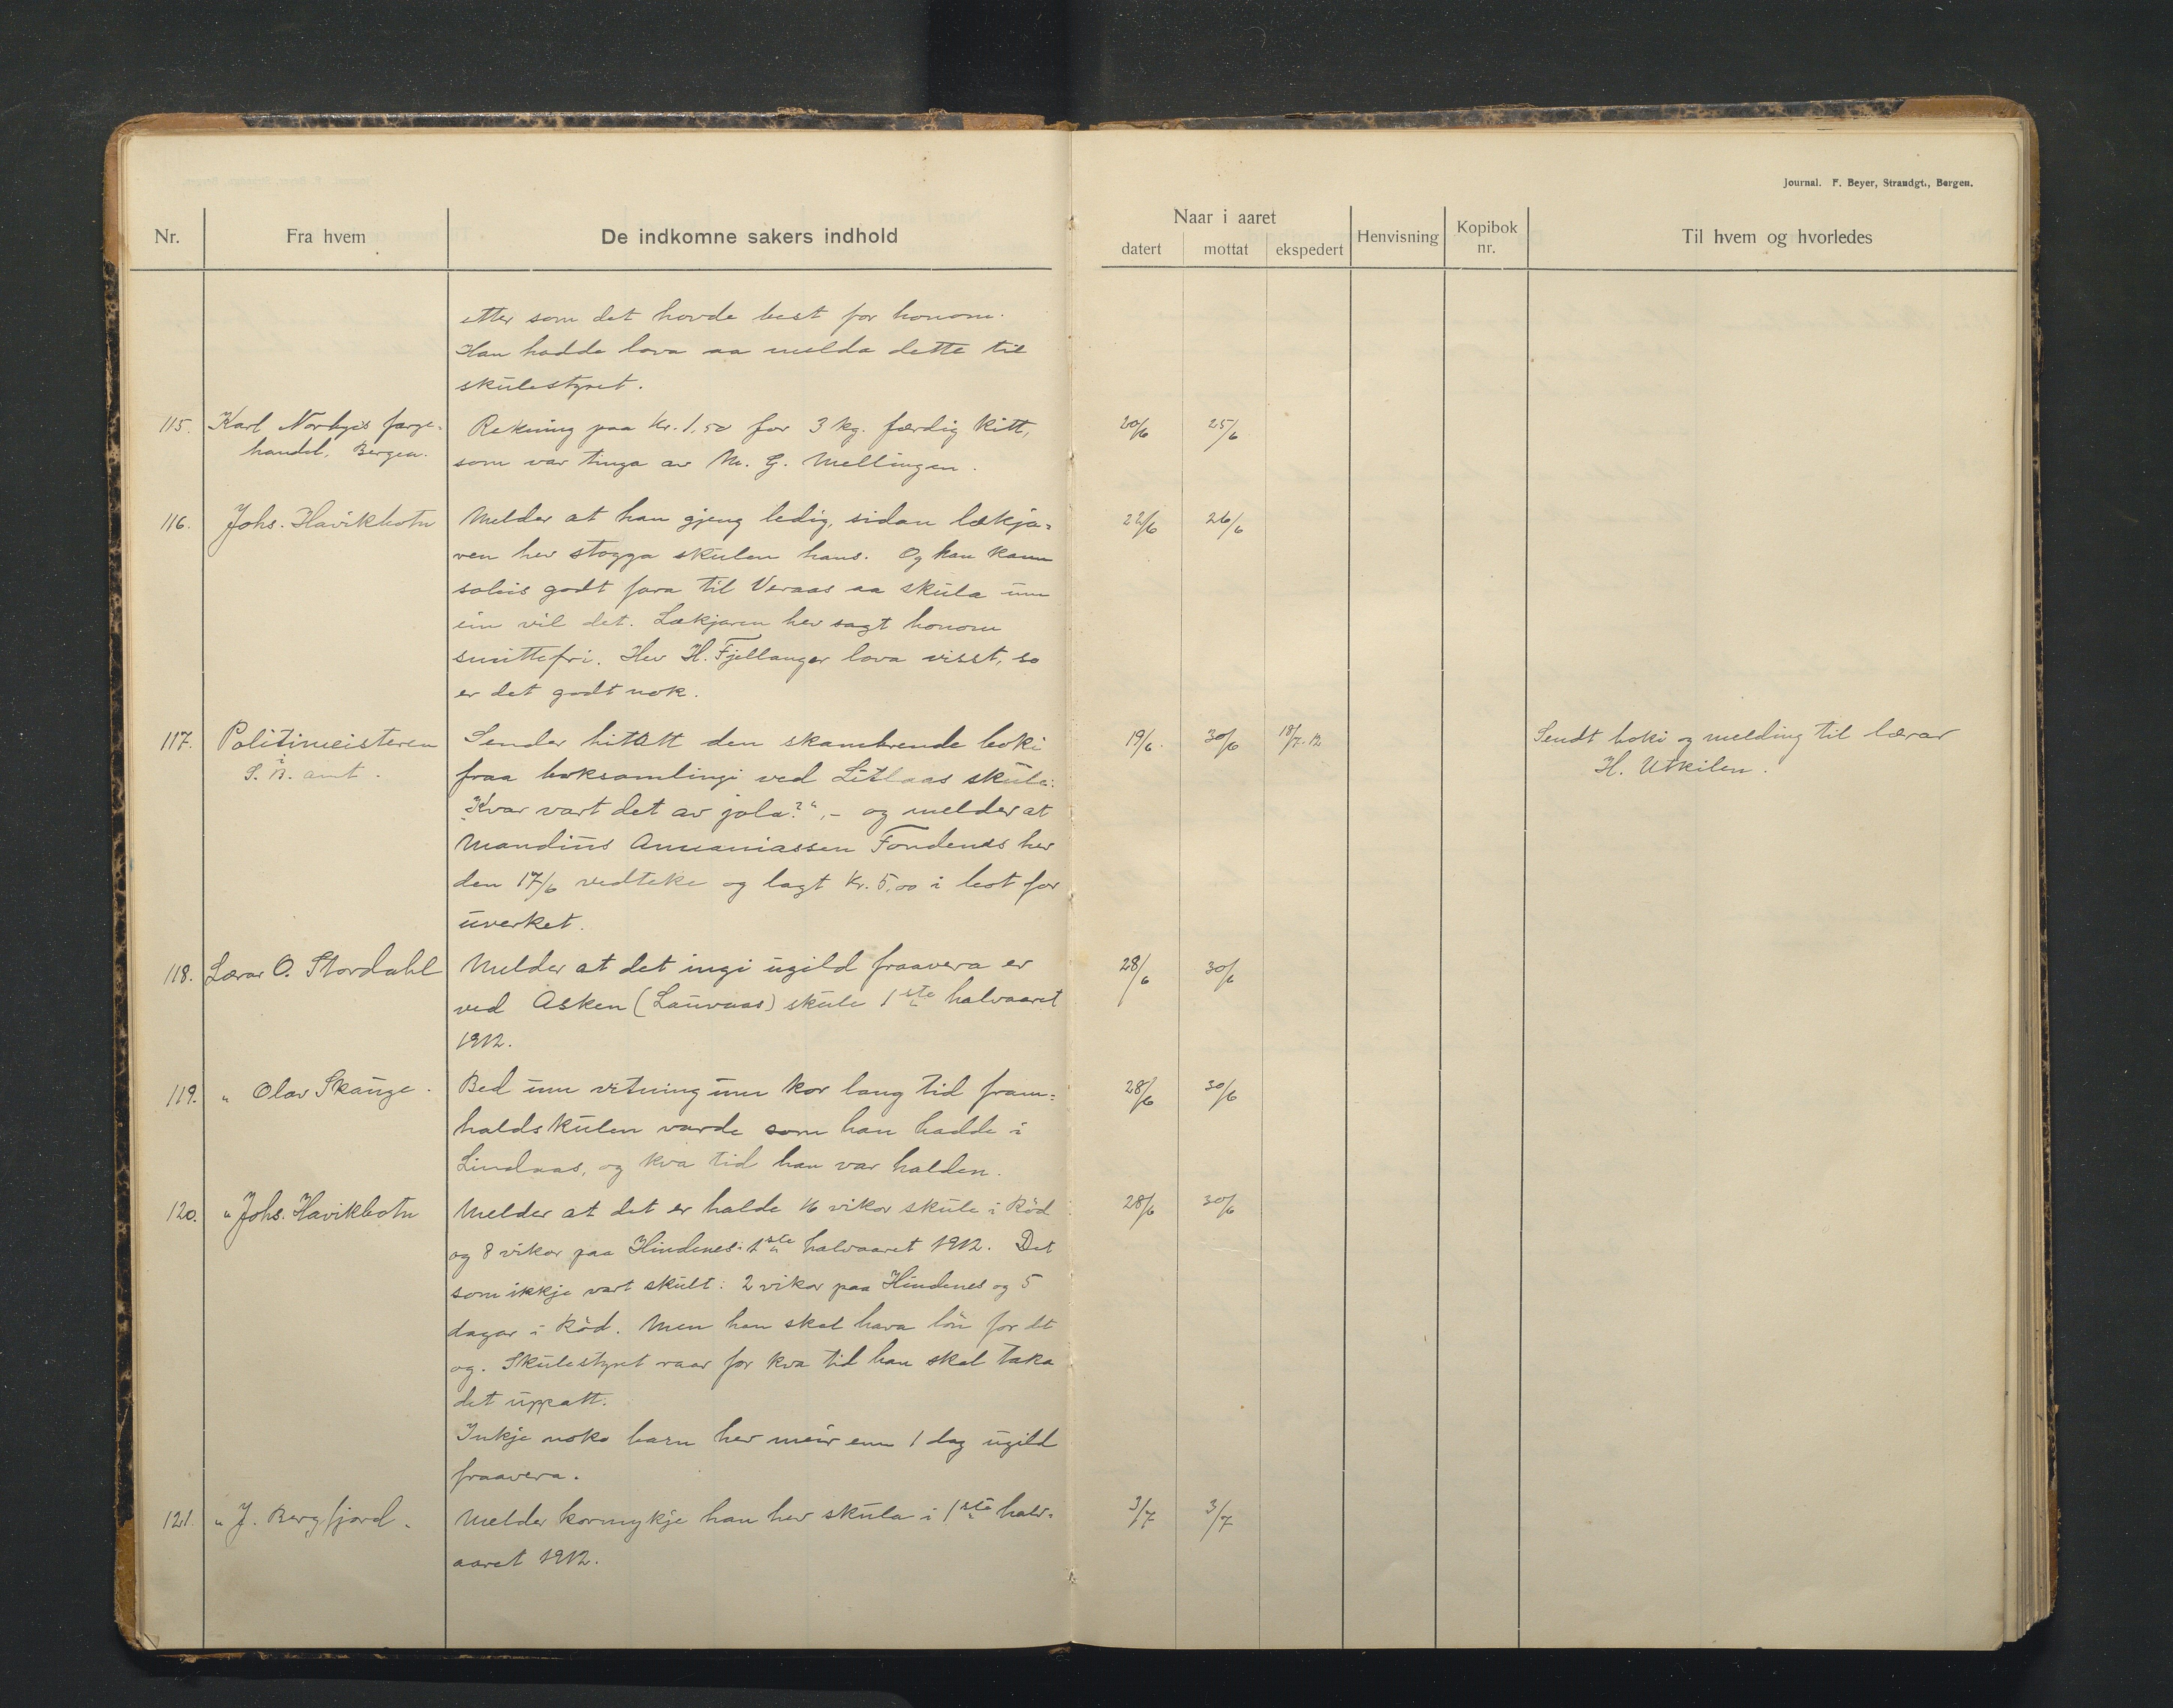 Journal. F. Beyer, Strandgt., Bergen.
Nr. Fra hvem De indkomne sakers indhold Naar i aaret datert mottat ekspedert Henvisning Kopibok nr. Til hvem og hvorledes
etter som det hovde best for honom.
Han hadde lova aa melda dette til
skulestyret.
115. Karl Norbyes farge- Rekning paa Kr. 1,50 for 3 kg. færdig Kitt, 20/6 25/6
handel, Bergen. som var tinga av M. G. Mellingen.
116. Johs. Havikbotn Melder at han gjeng ledig, sidan lækja= 22/6 26/6
ren hev stogga skulen hans. Og han kann
soleis godt fara til Veraas aa skula um
ein vil det. Lækjaren hev sagt honom
smittefri. Hev H. Fjellanger lova visst, so
er det godt nok.
117. Politimeisteren Sender hitatt den skamhrende boki 19/6. 30/6 18/7.12 Sendt boki og melding til lærar
S. B. amt. fraa boksamlingi ved Litlaas skule: H. Utkilen.
"Kvar vart det av jola?", - og melder at
Mandius Annaniassen Fondenes hev
den 17/6 vedteke og lagt Kr. 5,00 i bot for
uverket.
118. Lærar O. Stordahl Melder at det ingi ugild fraavera er 28/6 30/6
ved Asken (Lauvaas) skule 1ste halvaaret
1912.
119. " Olav Skauge. Bed um vitning um kor lang tid fram= 28/6 30/6
haldskulen varde som han hadde i
Lindaas, og kva tid han var halden.
120. " Johs. Havikbotn Melder at det er halde 16 vikor skule i Röd 28/6 30/6
og 8 vikor paa Hindenes i 1ste halvaaret 1912. Det
som ikkje vart skult: 2 vikor paa Hindenes og 5
dagar i Röd. Men han skal hava lön for det
og. Skulestyret raar for kva tid han skal taka
det uppatt.
Inkje noko barn hev meir enn 1 dag ugild
fraavera.
121. " J. Bergfjord. Melder kormykje han hev skula i 1ste halv= 3/7 3/7
aaret 1912.